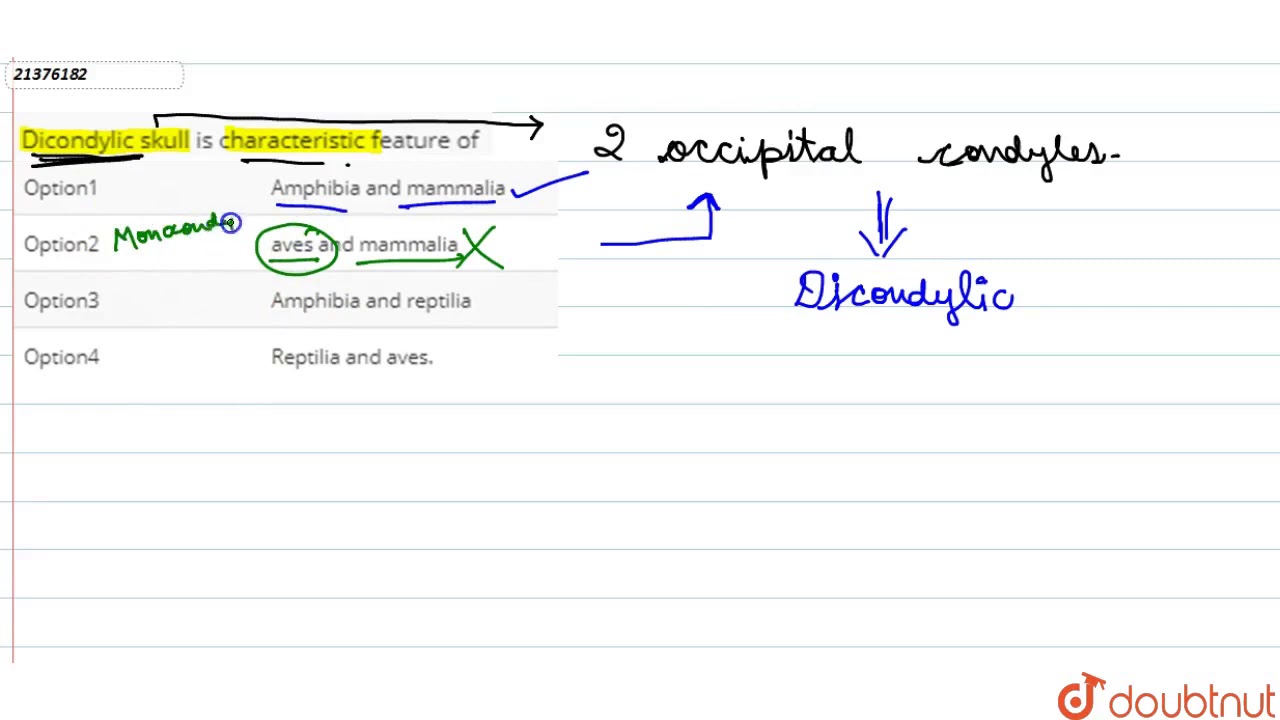 21376182
Dicondylic skull is characteristic feature of
2 occipital condyles.
Option1 Amphibia and mammalia
Option2 Monocondy aves and mammalia
Dicondylic
Option3 Amphibia and reptilia
Option4 Reptilia and aves.
doubtnut